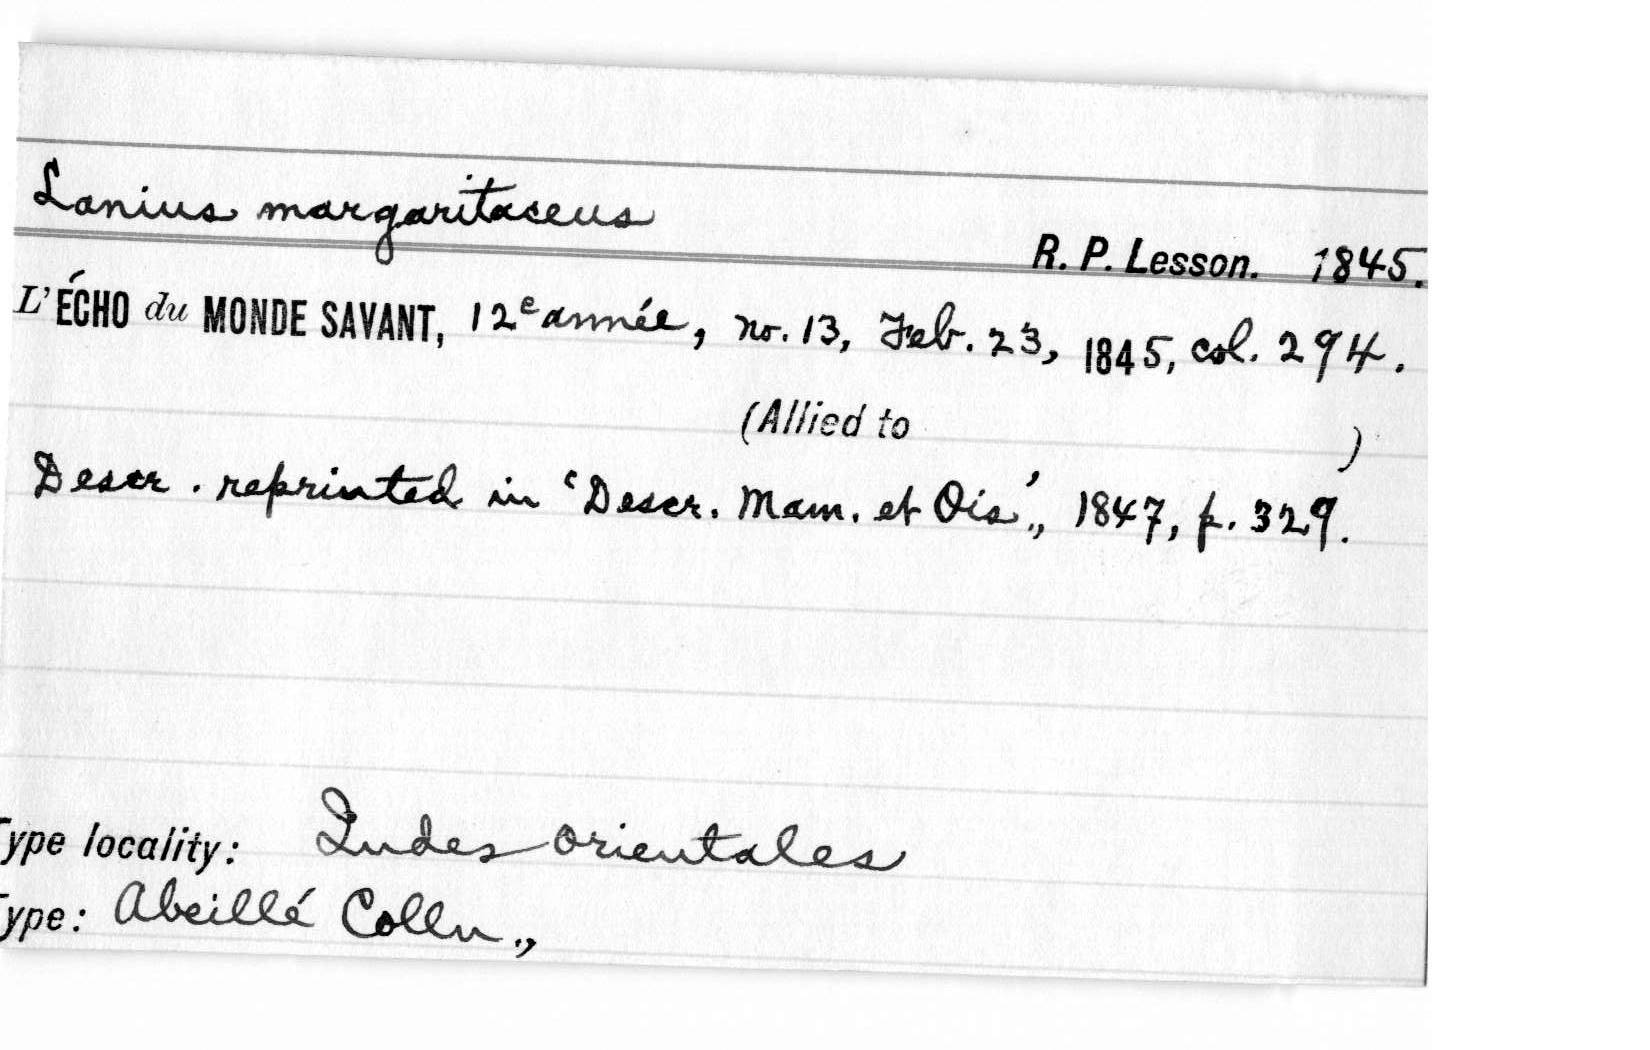 Lanius margaritaceus
R. P. Lesson. 1845.
L'ÉCHO du MONDE SAVANT, 12e année, no. 13, Feb. 23, 1845, col. 294.
(Allied to )
Descr. reprinted in 'Descr. Mam. et Ois.', 1847, p. 329.
Type locality: Indes orientales
Type: Abeillé Colln.,